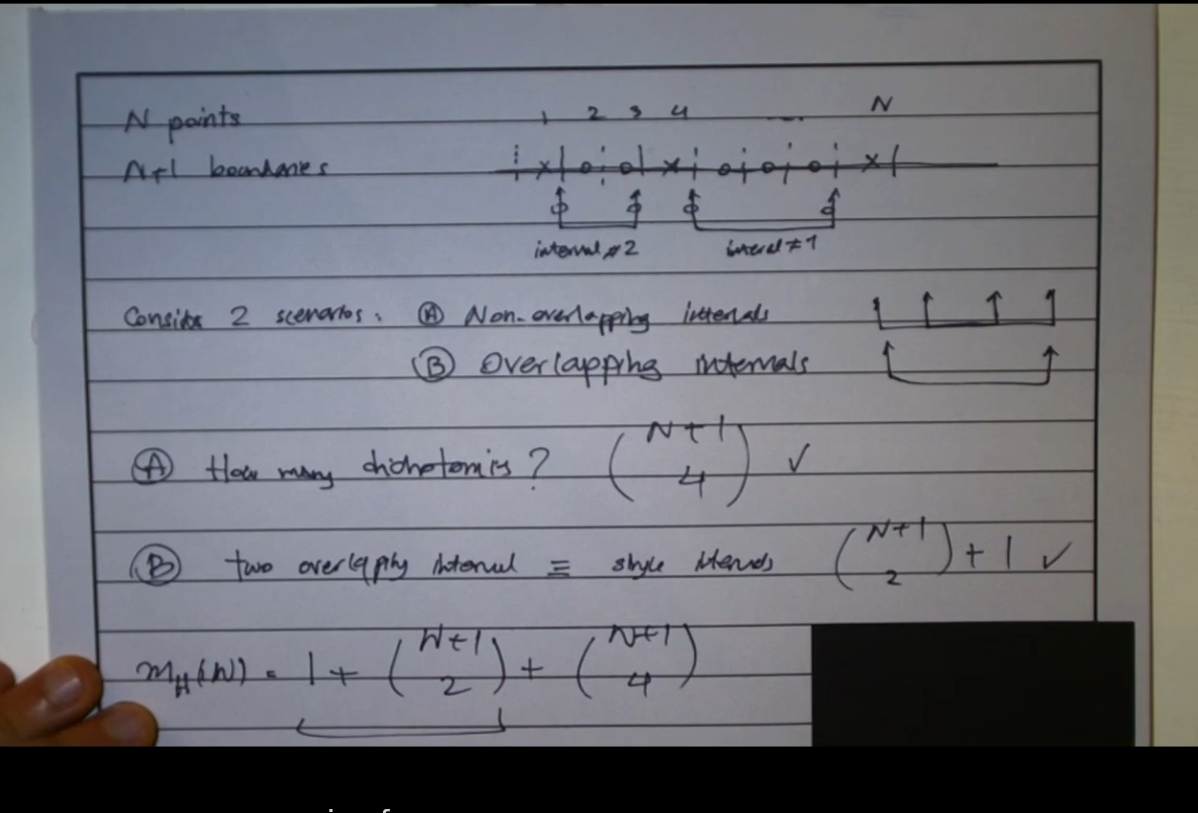 N points 1 2 3 4 ... N
N+1 boundaries
interval #2 interval #1
Consider 2 scenarios: (A) Non-overlapping intervals
(B) Overlapping intervals
(A) How many dichotomies? (N+1 4) ✓
(B) two overlapping interval ≡ single intervals (N+1 2) + 1 ✓
m_H(N) = 1 + (N+1 2) + (N+1 4)